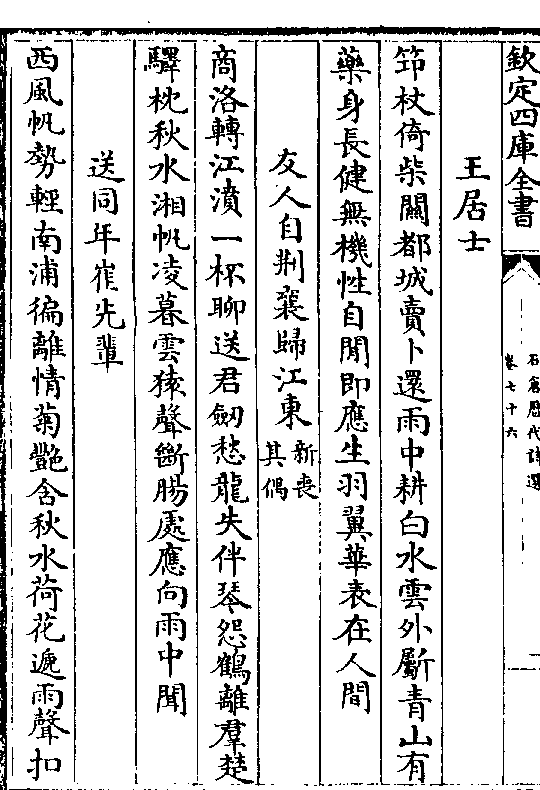 欽定四庫全書
石倉歷代詩選
卷七十六
王居士
笻杖倚柴關都城賣卜還雨中耕白水雲外斸青山有
藥身長健無機性自閒即應生羽翼華表在人間
友人自荆襄歸江東新喪其偶
商洛轉江濆一杯聊送君劒愁龍失伴琴怨鶴離羣楚
驛枕秋水湘帆凌暮雲猿聲斷腸處應向雨中聞
送同年崔先輩
西風帆勢輕南浦徧離情菊艷含秋水荷花遞雨聲扣